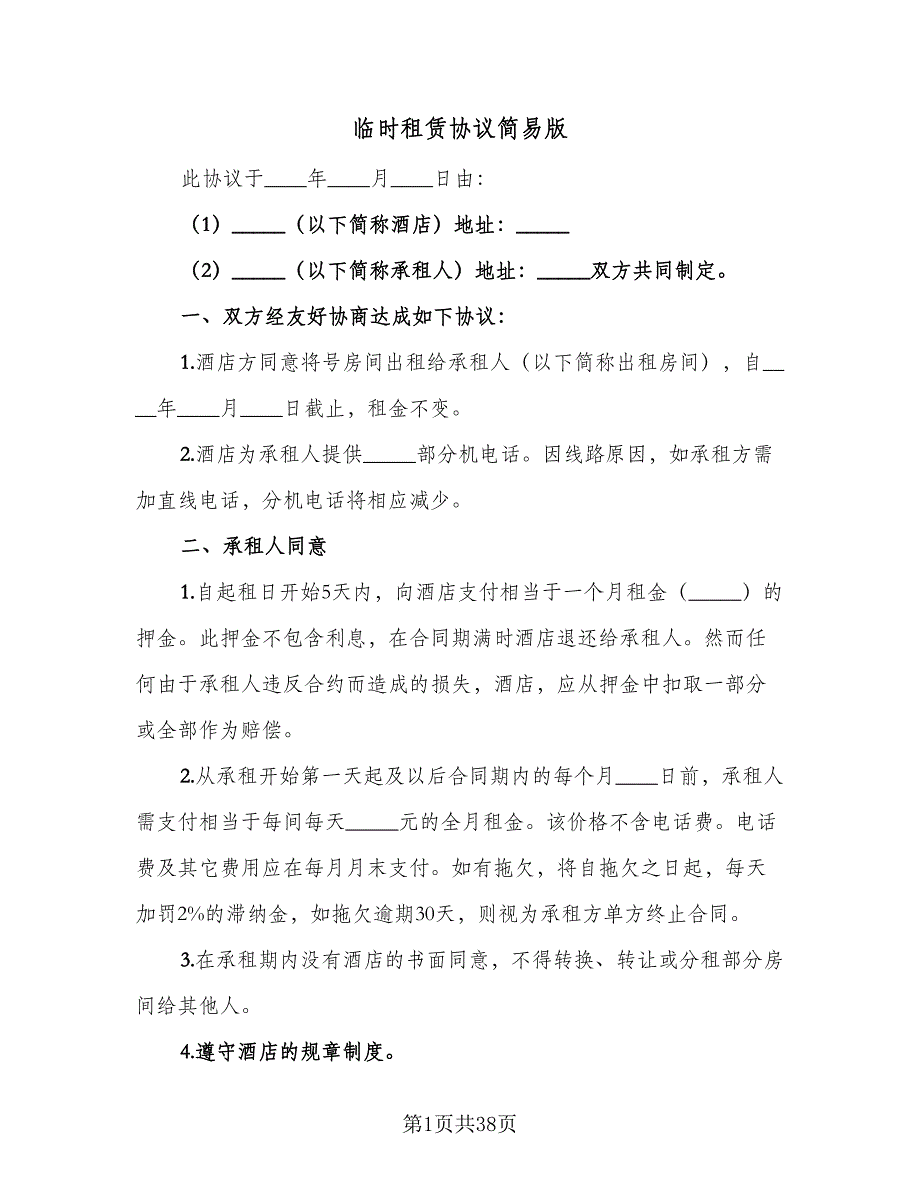 临时租赁协议简易版
此协议于____年____月____日由：
（1）_____（以下简称酒店）地址：_____
（2）_____（以下简称承租人）地址：_____双方共同制定。
一、双方经友好协商达成如下协议：
1.酒店方同意将号房间出租给承租人（以下简称出租房间），自__
__年____月____日截止，租金不变。
2.酒店为承租人提供_____部分机电话。因线路原因，如承租方需
加直线电话，分机电话将相应减少。
二、承租人同意
1.自起租日开始5天内，向酒店支付相当于一个月租金（_____）的
押金。此押金不包含利息，在合同期满时酒店退还给承租人。然而任
何由于承租人违反合约而造成的损失，酒店，应从押金中扣取一部分
或全部作为赔偿。
2.从承租开始第一天起及以后合同期内的每个月____日前，承租人
需支付相当于每间每天_____元的全月租金。该价格不含电话费。电话
费及其它费用应在每月月末支付。如有拖欠，将自拖欠之日起，每天
加罚2%的滞纳金，如拖欠逾期30天，则视为承租方单方终止合同。
3.在承租期内没有酒店的书面同意，不得转换、转让或分租部分房
间给其他人。
4.遵守酒店的规章制度。
第1页共38页